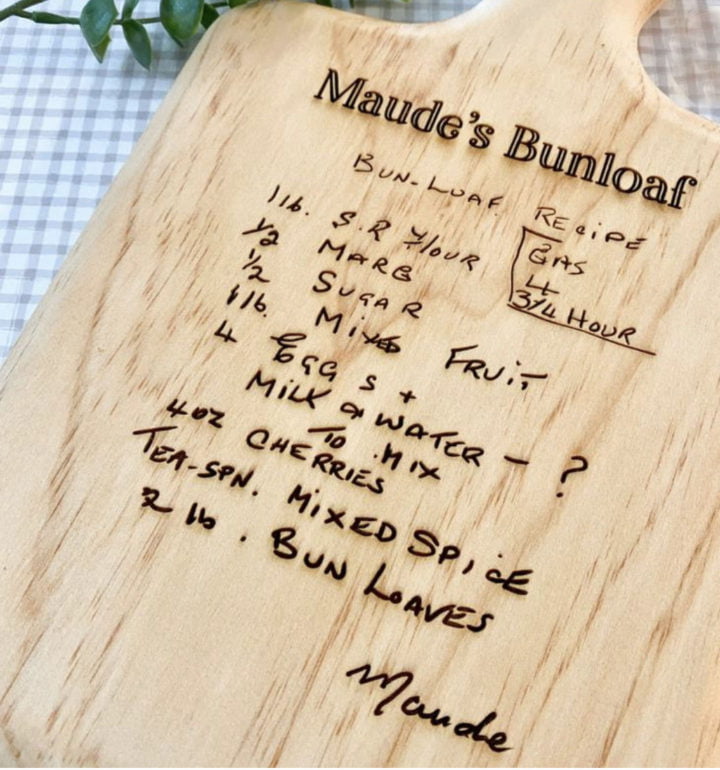 Maude's Bunloaf
BUN-LOAF RECIPE
1lb. S.R Flour
GAS
4
3/4 HOUR
1/2 MARG
1/2 SUGAR
1lb. MIXED FRUIT
4 EGGS +
MILK & WATER - ?
TO MIX
4oz CHERRIES
TEA-SPN. MIXED SPICE
2 lb. BUN LOAVES
Maude